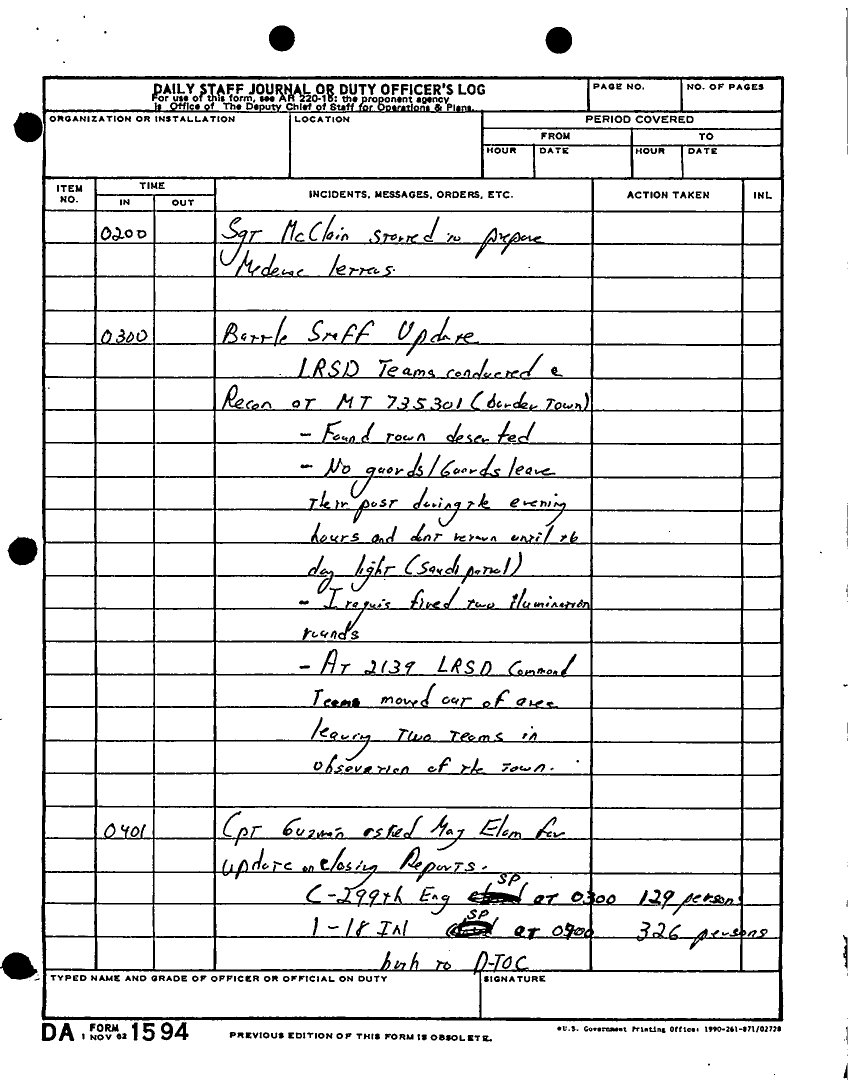 DAILY STAFF JOURNAL OR DUTY OFFICER'S LOG
For use of this form, see AR 220-15; the proponent agency
is Office of The Deputy Chief of Staff for Operations & Plans.
PAGE NO.
NO. OF PAGES
ORGANIZATION OR INSTALLATION
LOCATION
PERIOD COVERED
FROM
TO
HOUR
DATE
HOUR
DATE
ITEM NO.
TIME
IN
OUT
INCIDENTS, MESSAGES, ORDERS, ETC.
ACTION TAKEN
INL
0200 Sgt McClain started to prepare
Medevac letters.
0300 Battle Staff Update
LRSD Teams conducted a
Recon at MT 735301 (border Town)
- Found town deserted
- No guards/Guards leave
their post during the evening
hours and dont return until
day light (Saudi patrol)
- Iraquis fired two Illumination
rounds
- At 2139 LRSD Command
Teams moved out of area
leaving Two Teams in
observation of the Town.
0401 Cpt Guzman asked Maj Elam for
update on closing Reports.
C-299th Eng SP at 0300 129 persons
1-18 Inf SP at 0400 326 persons
both to D-TOC
TYPED NAME AND GRADE OF OFFICER OR OFFICIAL ON DUTY
SIGNATURE
DA FORM 1 NOV 62 1594
PREVIOUS EDITION OF THIS FORM IS OBSOLETE.
*U.S. Government Printing Office: 1990-261-871/02728